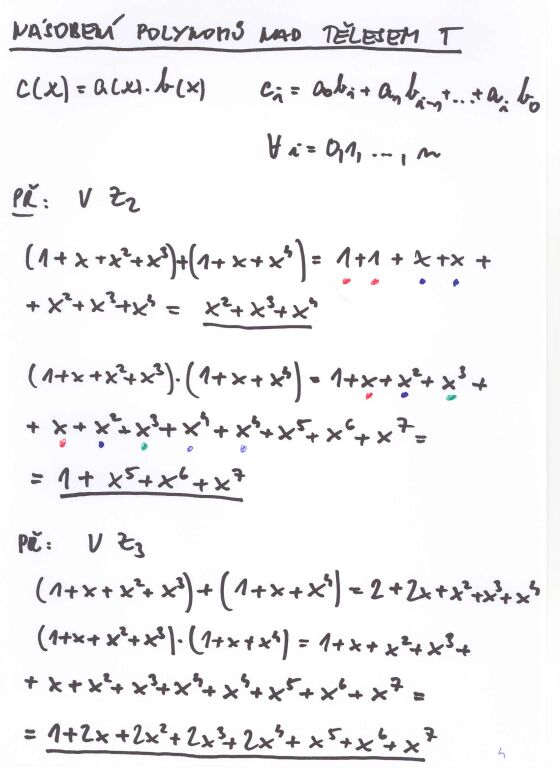 NÁSOBENÍ POLYNOMŮ NAD TĚLESEM T
c(x) = a(x)·b(x) cᵢ = a₀bᵢ + a₁bᵢ₋₁ + ... + aᵢb₀
∀ i = 0,1, ..., n
PŘ: V Z₂
(1+x+x²+x³)+(1+x+x⁴) = 1+1 + x+x +
+ x²+x³+x⁴ = x²+x³+x⁴
(1+x+x²+x³)·(1+x+x⁴) = 1+x+x²+x³ +
+ x+x²+x³+x⁴+x⁴+x⁵+x⁶+x⁷ =
= 1+x⁵+x⁶+x⁷
PŘ: V Z₃
(1+x+x²+x³)+(1+x+x⁴) = 2+2x+x²+x³+x⁴
(1+x+x²+x³)·(1+x+x⁴) = 1+x+x²+x³+
+ x+x²+x³+x⁴+x⁴+x⁵+x⁶+x⁷ =
= 1+2x+2x²+2x³+2x⁴+x⁵+x⁶+x⁷
4